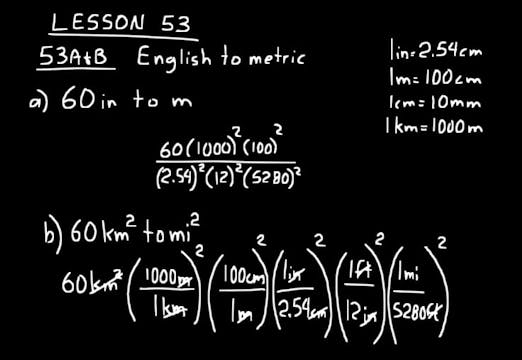 LESSON 53
53A+B English to metric
1in=2.54cm
1m=100cm
1cm=10mm
1km=1000m
a) 60in to m
60(1000)²(100)²
(2.54)²(12)²(5280)²
b) 60km² to mi²
60km² (1000m/1km)² (100cm/1m)² (1in/2.54cm)² (1ft/12in)² (1mi/5280ft)²